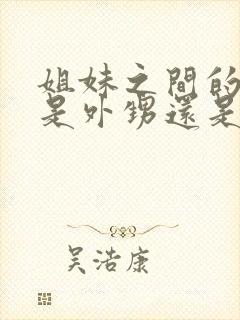 姐妹之間的
是外甥還是
吴浩康